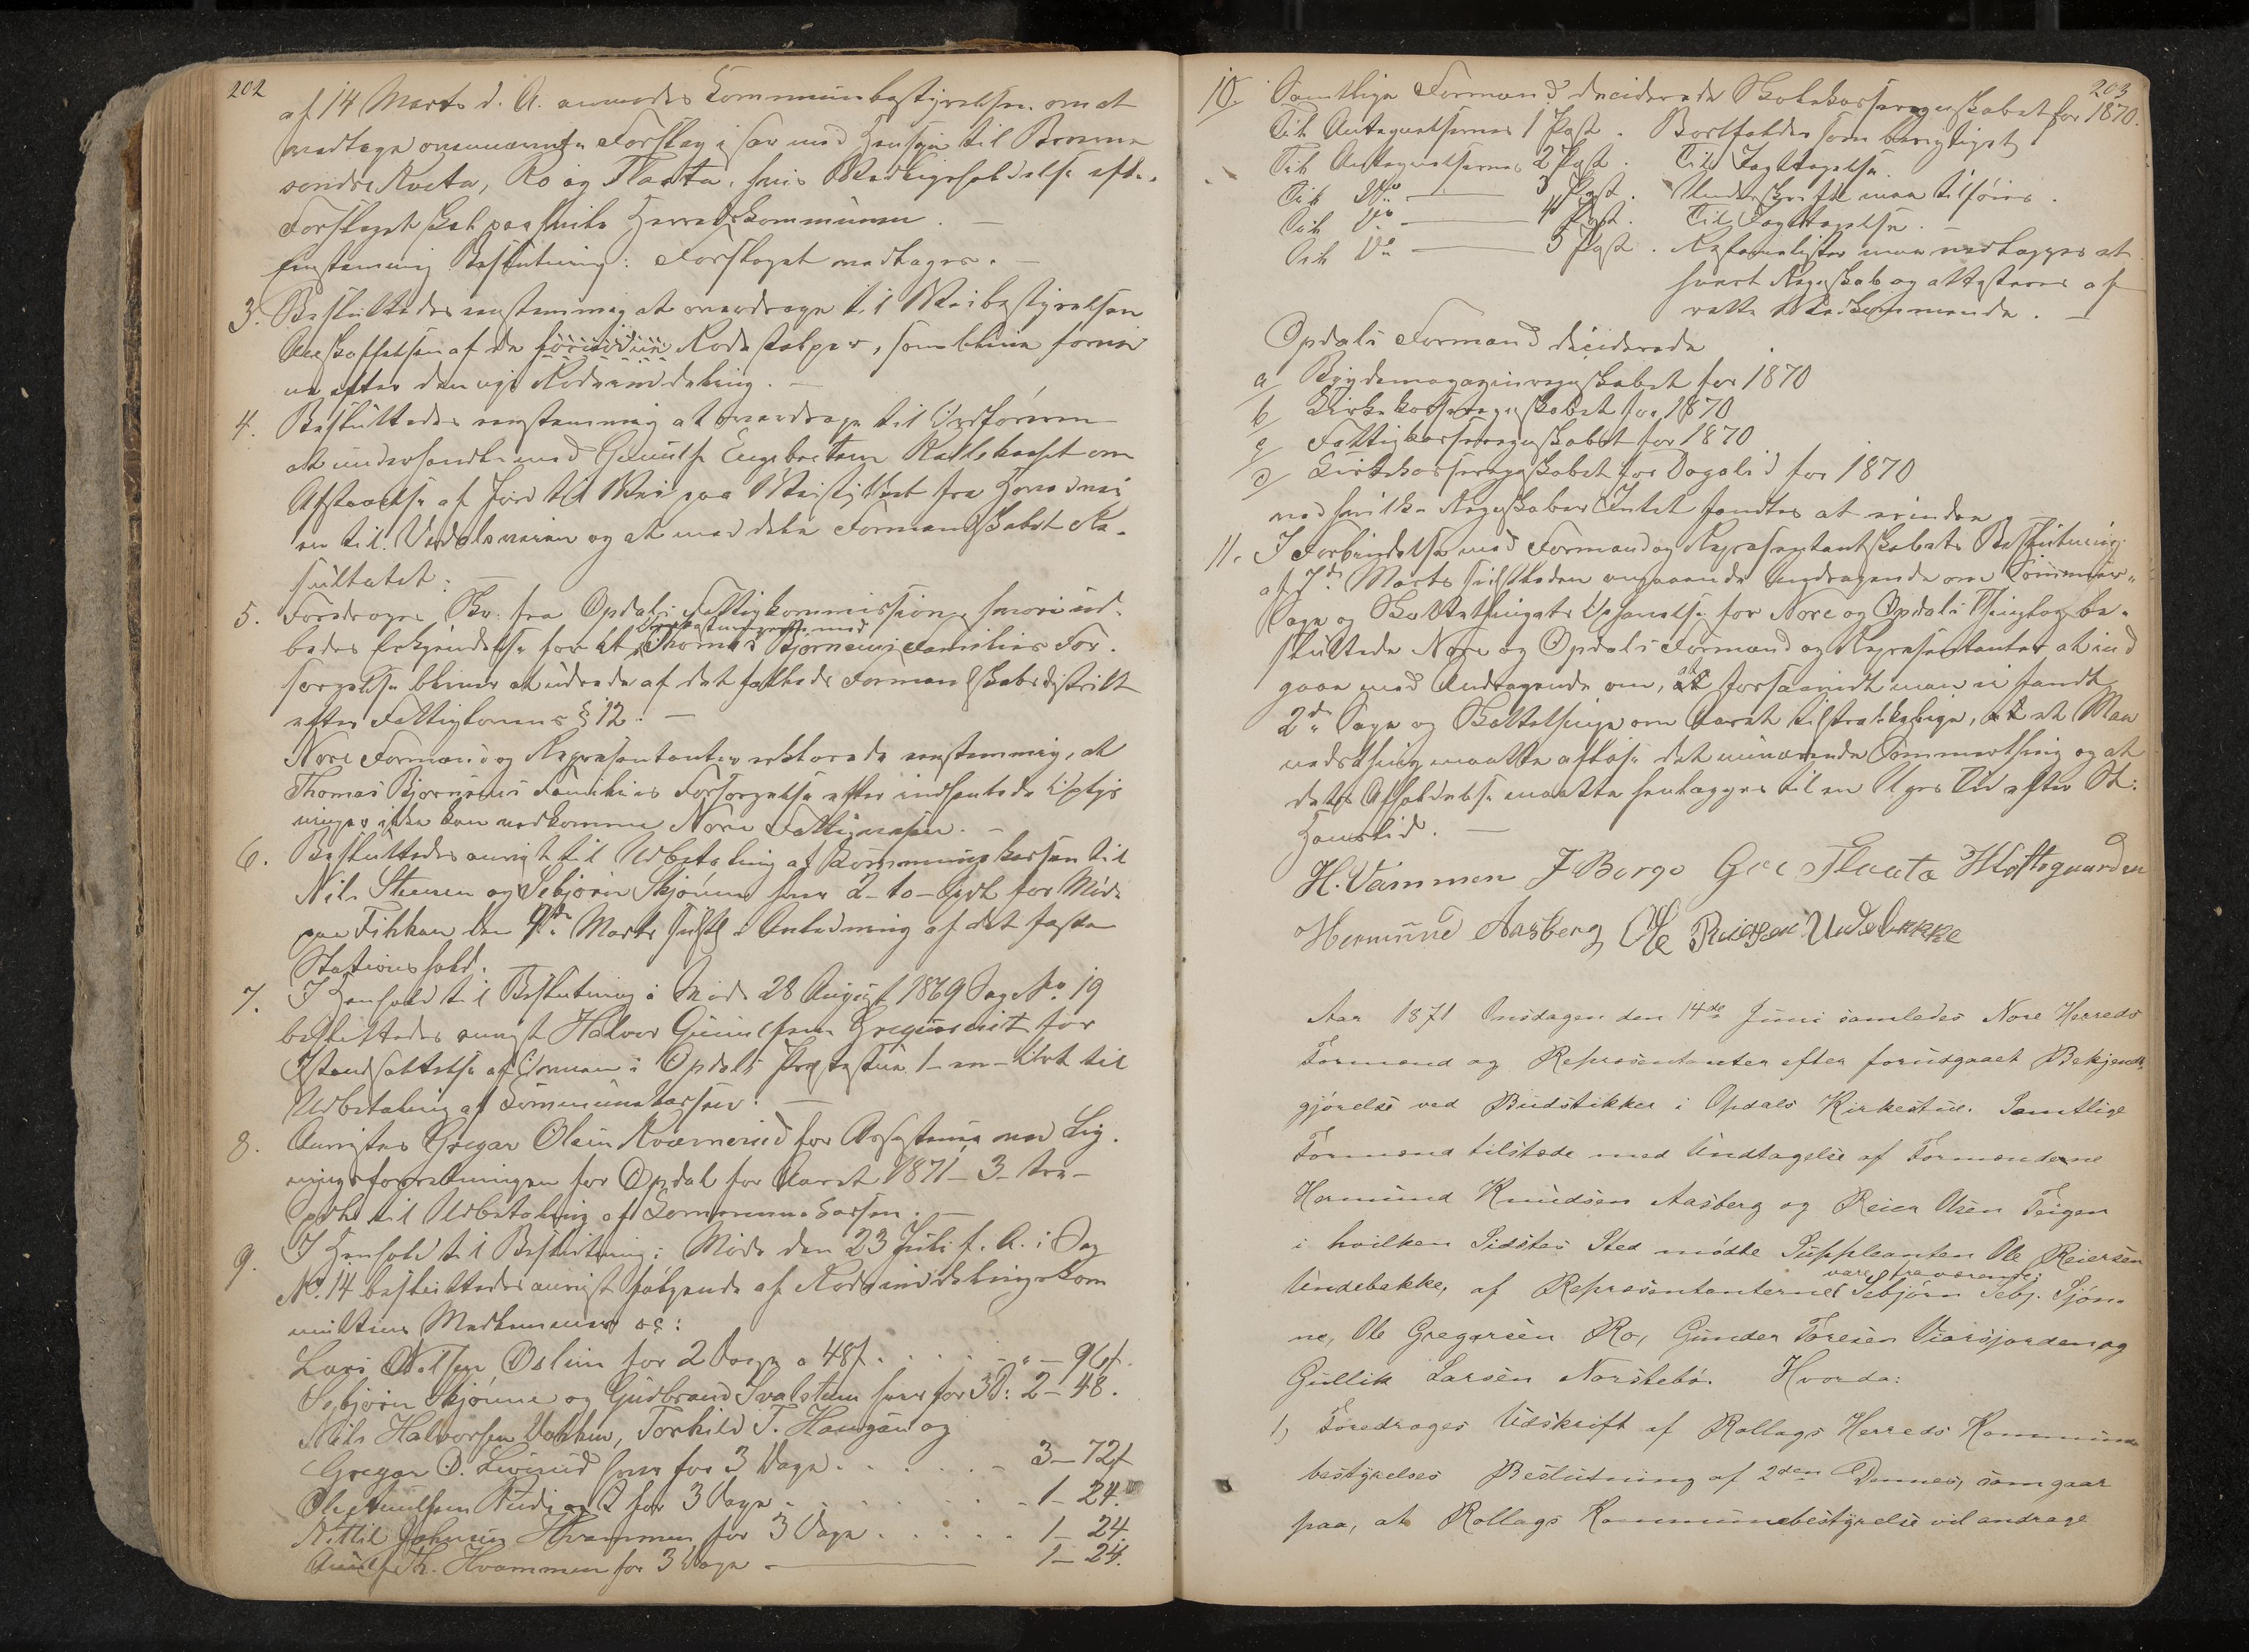 202
af 14 Marts d. A. anmodes Kommunebestyrelsen om at
modtage Forslag i saa med Hensyn til
søndre Kvota, Ro og Flaata, hvis Vedligeholdelse efter
Forslaget skal paahvile Herredskommunen. —
Enstemmig Beslutning: Forslaget modtages. —
3. Besluttedes enstemmig at overdrage til Veibestyrelsen
Anskaffelsen af de Rodestolper, som blive fornø
ne efter den nye Rodeinddeling. —
4. Besluttedes enstemmig at overdrage til Ordføreren
at underhandle med Engebretsen om
Afstaaelse af Jord til Vei paa fra
en til og at meddele Formandskabet Re-
sultatet. —
5. Foredroges Skr. fra Opdals Fattigkommission, hvori ud-
bedes Erkjendelse for at Thomas Bjørneruds Families For-
sørgelse bliver at udrede af det fælleds Formandskabsdistrikt
efter Fattiglovens § 12. —
Nore Formænd og Repræsentanter erklærede enstemmig, at
Thomas Bjørneruds Families Forsørgelse efter indhentede Oplys
ninger ikke kan vedkomme Nore Fattigvæsen. —
6. Besluttedes anvist til Udbetaling af Kommunekassen til
Nils Steensen og Sebjørn Skjønne hver 2 - to - Spdl for Møde
paa den 9de Marts sidstl. i Anledning af det faste
Stationshold.
7. I Henhold til Beslutning i Møde 28 August 1869 Sag No. 19
besluttedes anvist Halvor Gunulfsen for
Istandsættelse af Ovnen i Opdals Præstestue 1 - en - Ort til
Udbetaling af Kommunekassen. —
8. Anvistes Gregar Olsen Kværnerud for Assistance ved Lig-
ningsforretningen for Opdal for Aaret 1871 - 3 - tre -
Spdl. til Udbetaling af Kommunekassen. —
9. I Henhold til Beslutning i Møde den 23 Juli f. A. i Sag
No. 14 besluttedes anvist følgende af Rodeinddelingskom
mitteens Medlemmer as:
Lars Nilsen Oslim for 2 Dage a 48 s. . . . . " - 96 s.
Sebjørn Skjønne og Gudbrand Tvalstuen hver for 3 D: 2 - 48.
Nils Halvorsen Vokken, Torkild T. Haugan og
Gregar O. Liverud hver for 3 Dage . . . . . 3 - 72 s
for 3 Dage . . . . . . 1 - 24.
Kittil Johnsen Hvammen for 3 Dage . . . . . 1 - 24.
Th. Hvammen for 3 Dage — 1 - 24.
203
10. Samtlige Formænd deciderede Skolekasseregnskabet for 1870.
Til Antegnelsernes 1 Post. Bortfalder som berigtiget
Til Antegnelsernes 2 Post. Til Iagttagelse.
Til Do — 3 Post. Underskrift maa tilføies.
Til Do — 4 Post. Til Iagttagelse.
Til Do — 5 Post. maa vedlægges et
hvert Regnskab og attesteres af
rette Vedkommende. —
Opdals Formænd deciderede
a/ Bygdemagasinregnskabet for 1870
b/ Kirkekasseregnskabet for 1870
c/ Fattigkasseregnskabet for 1870
d/ Kirkekasseregnskabet for Dagalid for 1870
ved hvilke Regnskaber Intet fandtes at erindre. —
11. I Forbindelse med Formand og Repræsentantskabets Beslutning
af 7de Marts sidstleden angaaende Andragende om Sommer-
Sage og Skattethingets Ophævelse for Nore og Opdals Thinglag be-
sluttede Nore og Opdals Formænd og Repræsentanter at ind
gaa med Andragende om, at forsaavidt man ei fandt
2de Sage og Skattethinge om Aaret tilstrækkelige, at et Maa
nedsthing maatte afløse det nuværende Sommerthing og at
dets Afholdelse maatte henlægges til en Uges Tid efter St.
Hanstid. —
H. Vammen J Borge Gre Flaata H Toftegaarden
Hermund Aasberg Ole Reiersen Undebakke
Aar 1871 Onsdagen den 14de Juni samledes Nore Herreds
Formænd og Repræsentanter efter forudgaaet Bekjendt-
gjørelse ved Budstikker i Opdals Kirkestue. Samtlige
Formænd tilstede med Undtagelse af Formændene
Hermund Knudsen Aasberg og Reier Olsen Teigen
i hvilken Sidstes Sted mødte Suppleanten Ole Reiersen
Undebakke, af Repræsentanterne vare fraværende: Sebjørn Sebj. Sjøn-
ne, Ole Gregersen Ro, Gunder Toresen Viersjorden og
Gullik Larsen Norstebø. Hvorda:
1) Foredroges Udskrift af Rollags Herreds Kommune
bestyrelses Beslutning af 2den Dennes, som gaar
paa, at Rollags Kommunebestyrelse vil andrage